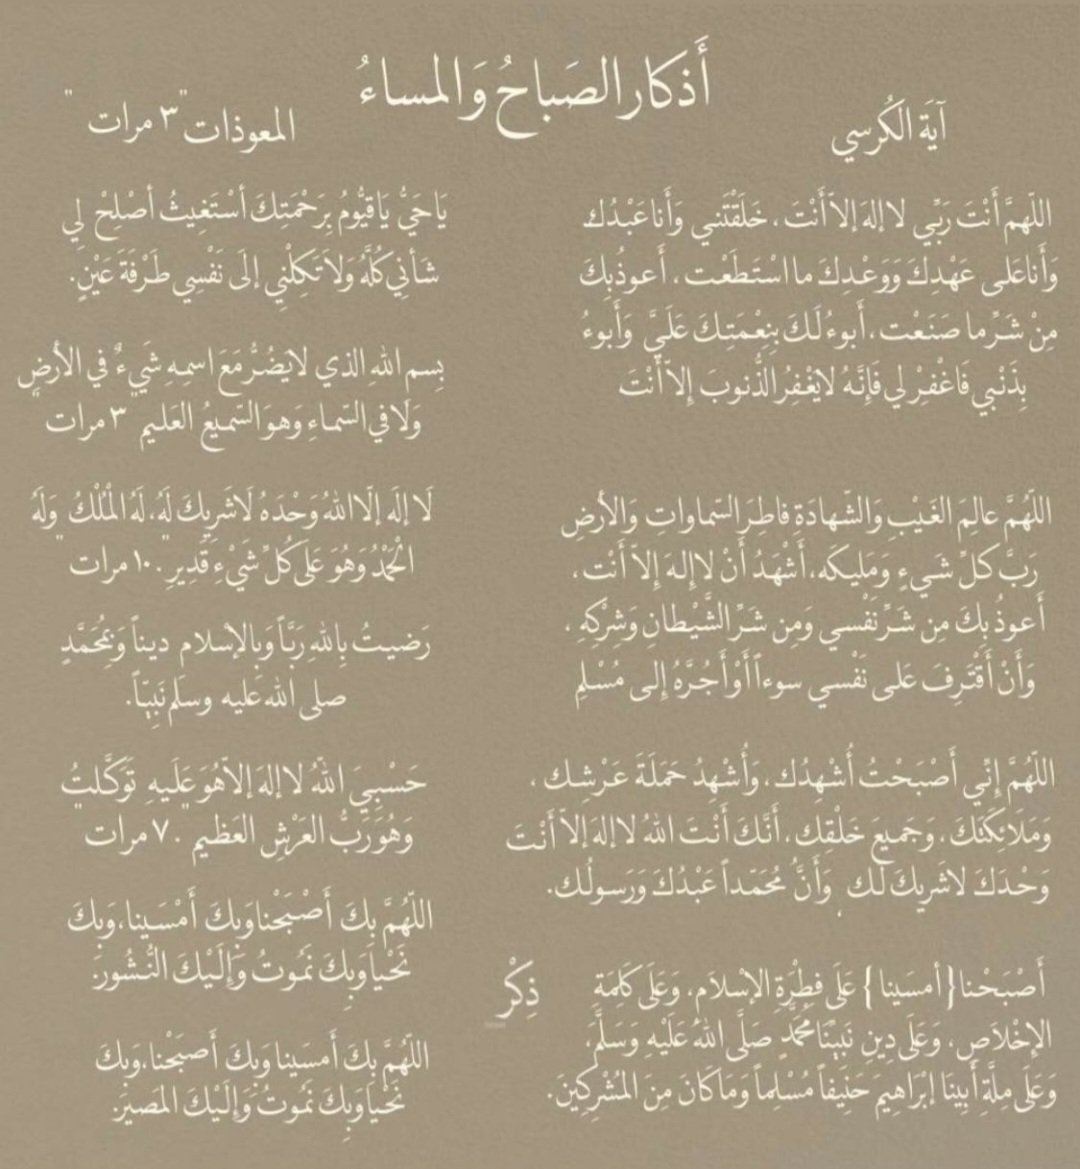 أَذكار الصَباحُ وَالمساءُ
آيَةَ الكُرسي
اللّهمَّ أَنْتَ رَبِّي لا إلهَ إلاّ أَنْتَ ، خَلَقْتَني وَأَنا عَبْدُك
وَأَنا عَلى عَهْدِكَ وَوَعْدِكَ ما اسْتَطَعْت ، أَعوذُ بِكَ
مِنْ شَرِّ ما صَنَعْت ، أَبوءُ لَكَ بِنِعْمَتِكَ عَلَيَّ وَأَبوءُ
بِذَنْبي فَاغْفِرْ لي فَإِنَّهُ لا يَغْفِرُ الذُّنوبَ إِلاّ أَنْتَ
اللّهُمَّ عالِمَ الغَيْبِ وَالشّهادَةِ فاطِرَ السّماواتِ وَالأرضِ
رَبَّ كلِّ شَيءٍ وَمَليكَه، أَشْهَدُ أَنْ لا إِلهَ إِلاّ أَنْت ،
أَعوذُ بِكَ مِن شَرِّ نَفْسي وَمِن شَرِّ الشَّيْطانِ وَشِرْكِهِ ،
وَأَنْ أَقْتَرِفَ عَلى نَفْسي سوءاً أَوْ أَجُرَّهُ إِلى مُسْلِمِ
اللّهُمَّ إِنِّي أَصْبَحْتُ أُشْهِدُك ، وَأُشْهِدُ حَمَلَةَ عَرْشِك ،
وَمَلائِكَتَكَ ، وَجَميعَ خَلْقِك ، أَنَّكَ أَنْتَ اللهُ لا إلهَ إلاّ أَنْتَ
وَحْدَكَ لا شَريكَ لَك ، وَأَنَّ مُحَمّداً عَبْدُكَ وَرَسولُك.
أَصْبَحْنا { أمسَينا } عَلَى فِطْرَةِ الإسْلاَمِ، وَعَلَى كَلِمَةِ
الإِخْلاَصِ، وَعَلَى دِينِ نَبِيِّنَا مُحَمَّدٍ صَلَّى اللهُ عَلَيْهِ وَسَلَّمَ،
وَعَلَى مِلَّةِ أَبِينَا إبْرَاهِيمَ حَنِيفاً مُسْلِماً وَمَا كَانَ مِنَ المُشْرِكِينَ.
ذِكْر
المعوذات "٣ مرات"
يَا حَيُّ يَا قيُّومُ بِرَحْمَتِكَ أسْتَغِيثُ أصْلِحْ لِي
شَأنِي كُلَّهُ وَلاَ تَكِلْنِي إلَى نَفْسِي طَرْفَةَ عَيْنٍ.
بِسمِ اللهِ الذي لا يَضُرُّ مَعَ اسمِهِ شَيءٌ في الأرضِ
وَلا في السّماءِ وَهوَ السّميعُ العَليم "٣ مرات"
لَا إلَه إلّا اللهُ وَحْدَهُ لَا شَرِيكَ لَهُ، لَهُ المُلْكُ وَلَهُ
الْحَمْدُ وَهُوَ عَلَى كُلِّ شَيْءٍ قَدِيرِ . "١٠ مرات"
رَضيتُ بِاللهِ رَبَّاً وَبِالإسلام ديناً وَبِمُحَمَّدٍ
صلى الله عَليه وسلم نَبِيّاً.
حَسْبِيَ اللّهُ لا إلهَ إلاّ هُوَ عَلَيهِ تَوَكَّلتُ
وَهُوَ رَبُّ العَرْشِ العَظيم . "٧ مرات"
اللّهُمَّ بِكَ أَصْبَحْنا وَبِكَ أَمْسَينا، وَبِكَ
نَحْيا وَبِكَ نَمُوتُ وَإِلَيْكَ النُّشُور.
اللّهُمَّ بِكَ أَمسَينا وَبِكَ أَصبَحْنا، وَبِكَ
نَحْيا وَبِكَ نَمُوتُ وَإِلَيْكَ المَصيرَ.